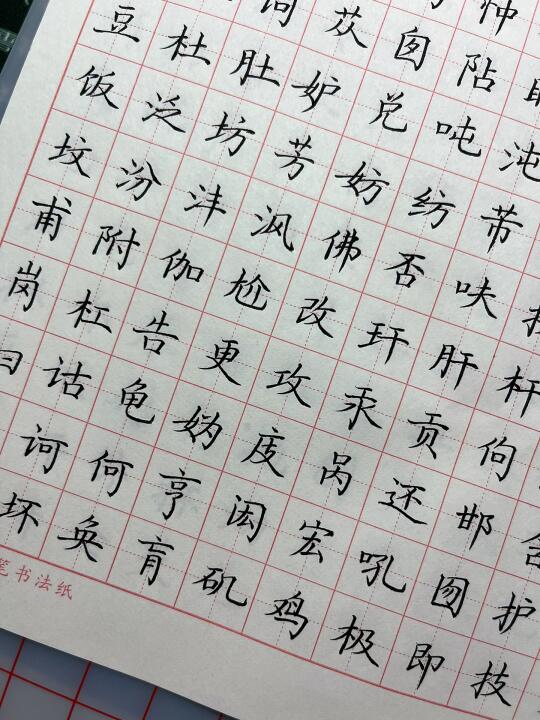 忡
苡 囱 阽
豆 杜 肚 妒 兑 吨 沌
饭 泛 坊 芳 妨 纺 芾
坟 汾 沣 沨 佛 否 呋
甫 附 伽 尬 改 玕 肝 杆
岗 杠 告 更 攻 汞 贡 佝
诂 龟 妫 庋 呙 还 邯
诃 何 亨 闳 宏 吼 囫 护
坏 奂 肓 矶 鸡 极 即 技
笔书法纸